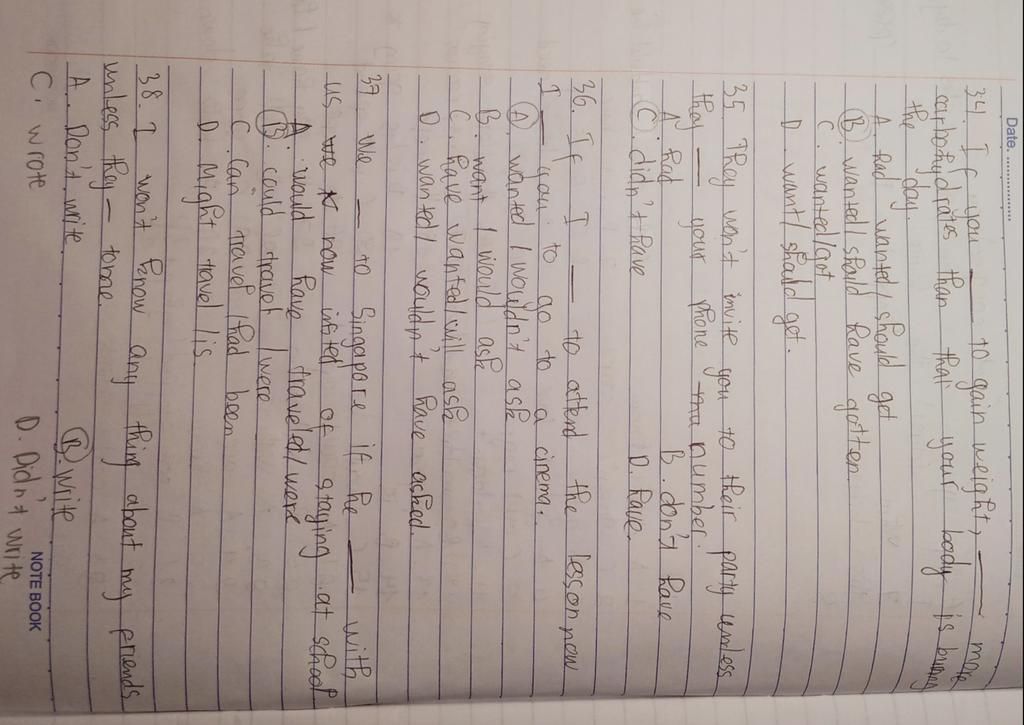 Date..................
34. If you — to gain weight, — more
carbohydrates than that your body is burning
the day.
A. had wanted / should get
B. wanted / should have gotten
C. wanted/got
D. want/ should get.
35 They won't invite you to their party unless
they — your phone number.
A. had
B. don't have
C. didn't have
D. have.
36. If I — to attend the lesson now
I — you to go to a cinema.
A. wanted / wouldn't ask
B. want / would ask
C. have wanted/will ask
D. wanted/ wouldn't have asked.
37. We — to Singapore if he — with
us now insted of staying at school
A. would have traveled/were
B. could travel /were
C. can travel /had been
D. Might travel /is.
38. I won't know any thing about my friends
unless they — tome.
A. Don't write
B. Write
C. wrote
D. Didn't write
NOTEBOOK